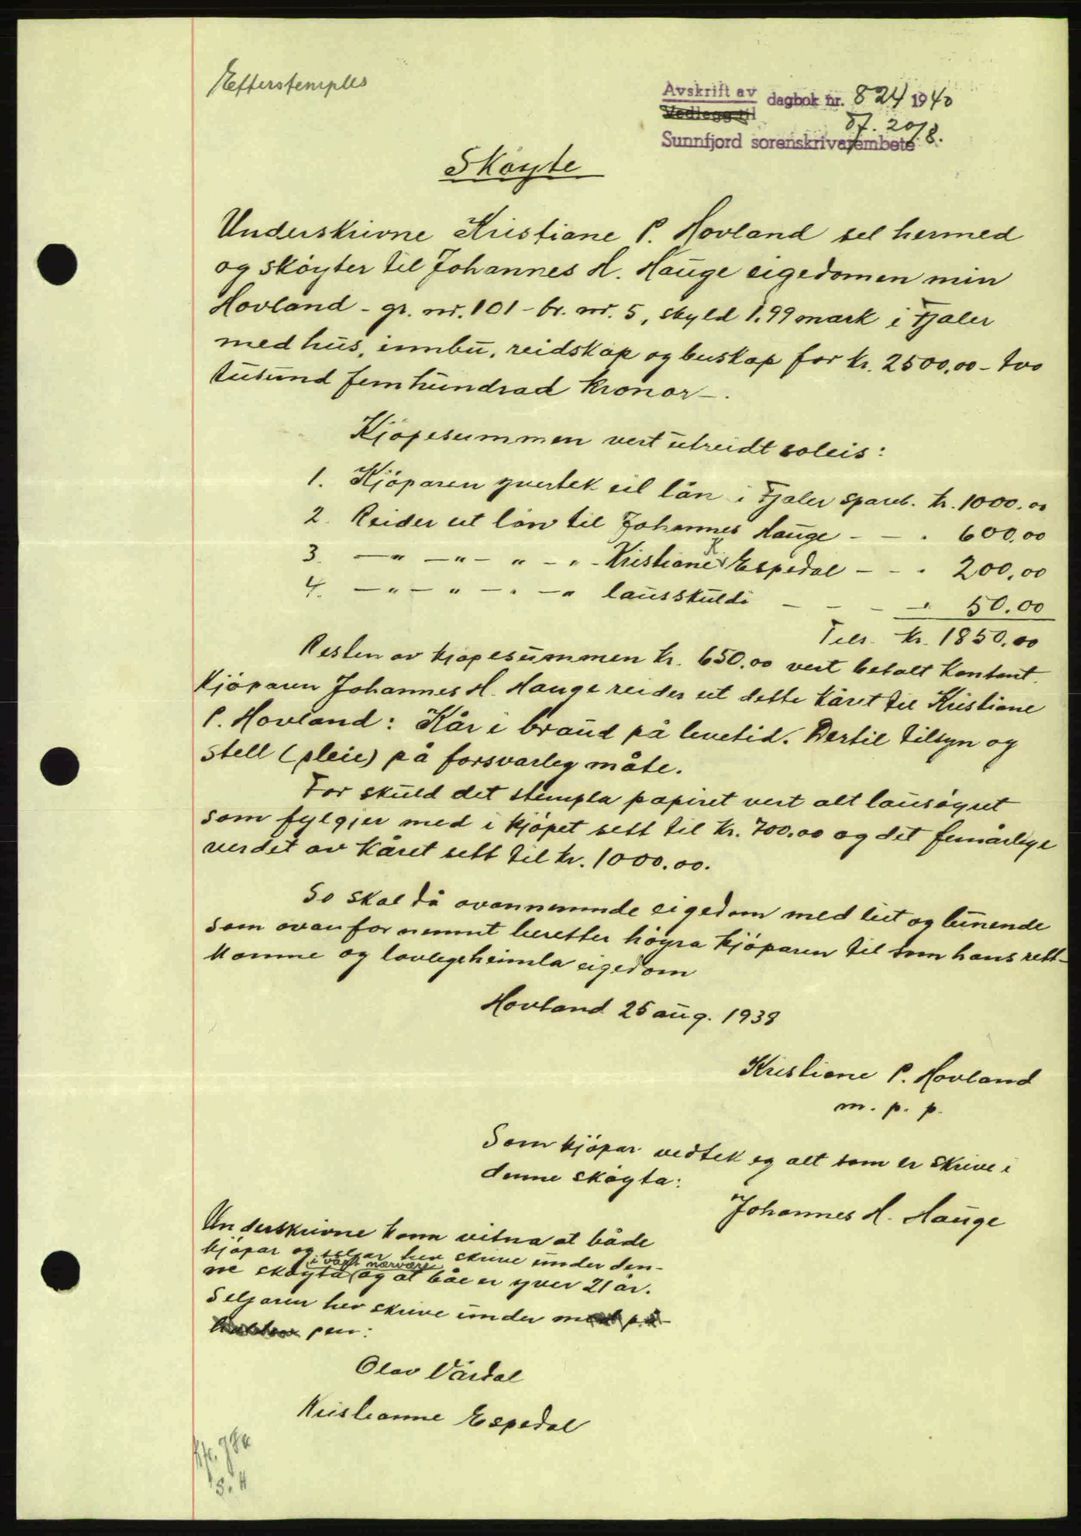 Efterstemples
Avskrift av
Vedlegg til
dagbok nr. 824 1940
Sunnfjord sorenskrivarembete 20/8.
Skøyte
Underskrivne Kristiane P. Hovland sel hermed
og skøyter til Johannes H. Hauge eigedomen min
Hovland - gr. nr. 101 - br. nr. 5, skyld 1.99 mark i Fjaler
med hus, innbu, reidskap og buskap for kr. 2500,00 - tvo
tusund femhundrad kronor -.
Kjøpesummen vert utreidt soleis:
1. Kjøparen yvertek eit lån i Fjaler spareb. kr. 1000.00
2. Reider ut lån til Johannes Hauge - - . 600,00
3. -"- -"- " - "- Kristiane K Espedal - - . 200,00
4. -"- " - . -" lausskuld - - - -. 50.00
Tils. kr. 1850.00
Resten av kjøpesummen kr. 650.00 vert betalt kontant.
Kjøparen Johannes H. Hauge reider ut dette kåret til Kristiane
P. Hovland: Kår i braud på levetid. Dertil tilsyn og
stell (pleie) på forsvarleg måte.
For skuld det stempla papiret vert alt lausøyret
som fylgjer med i kjøpet sett til kr. 700.00 og det femårlege
verdet av kåret sett til kr. 1000.00.
So skal då ovannemnde eigedom med lut og lunende
som ovanfor nemnt heretter høyra kjøparen til som hans rett-
komne og lovlegheimla eigedom
Hovland 25 aug. 1938
Kristiane P. Hovland
m. p. p.
Som kjøpar vedtek eg alt som er skrive i
denne skøyta:
Johannes H. Hauge
Underskrivne kann vitna at både
kjøpar og seljar hev skrive under den-
i vårt nærvære
ne skøyta og at båe er yver 21 år.
Seljaren hev skrive under
pen:
Olav Vårdal
Kristianne Espedal